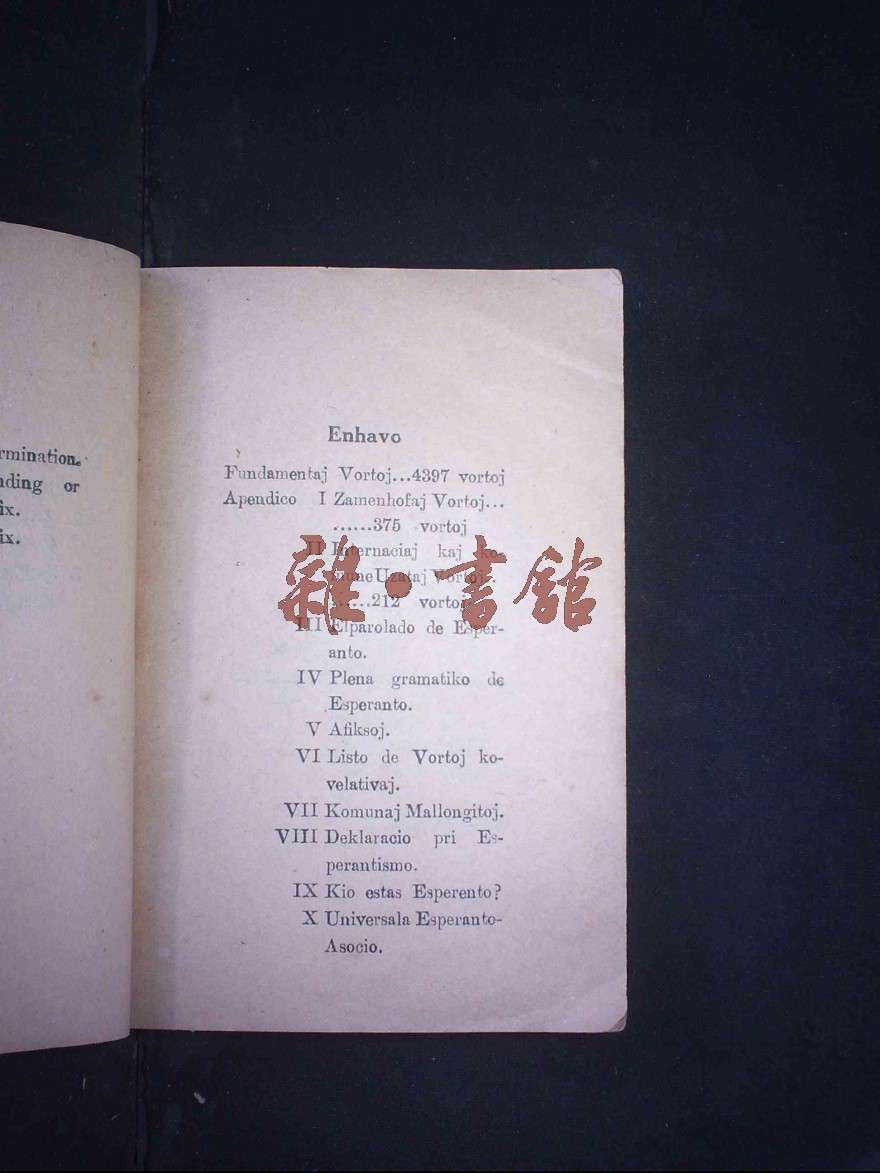 rmination.
nding or
ix.
ix.
Enhavo
Fundamentaj Vortoj...4397 vortoj
Apendico I Zamenhofaj Vortoj...
......375 vortoj
II Internaciaj kaj ko-
mune Uzataj Vortoj..
......212 vortoj
III Elparolado de Esper-
anto.
IV Plena gramatiko de
Esperanto.
V Afiksoj.
VI Listo de Vortoj ko-
velativaj.
VII Komunaj Mallongitoj.
VIII Deklaracio pri Es-
perantismo.
IX Kio estas Esperento?
X Universala Esperanto-
Asocio.
雜·書館